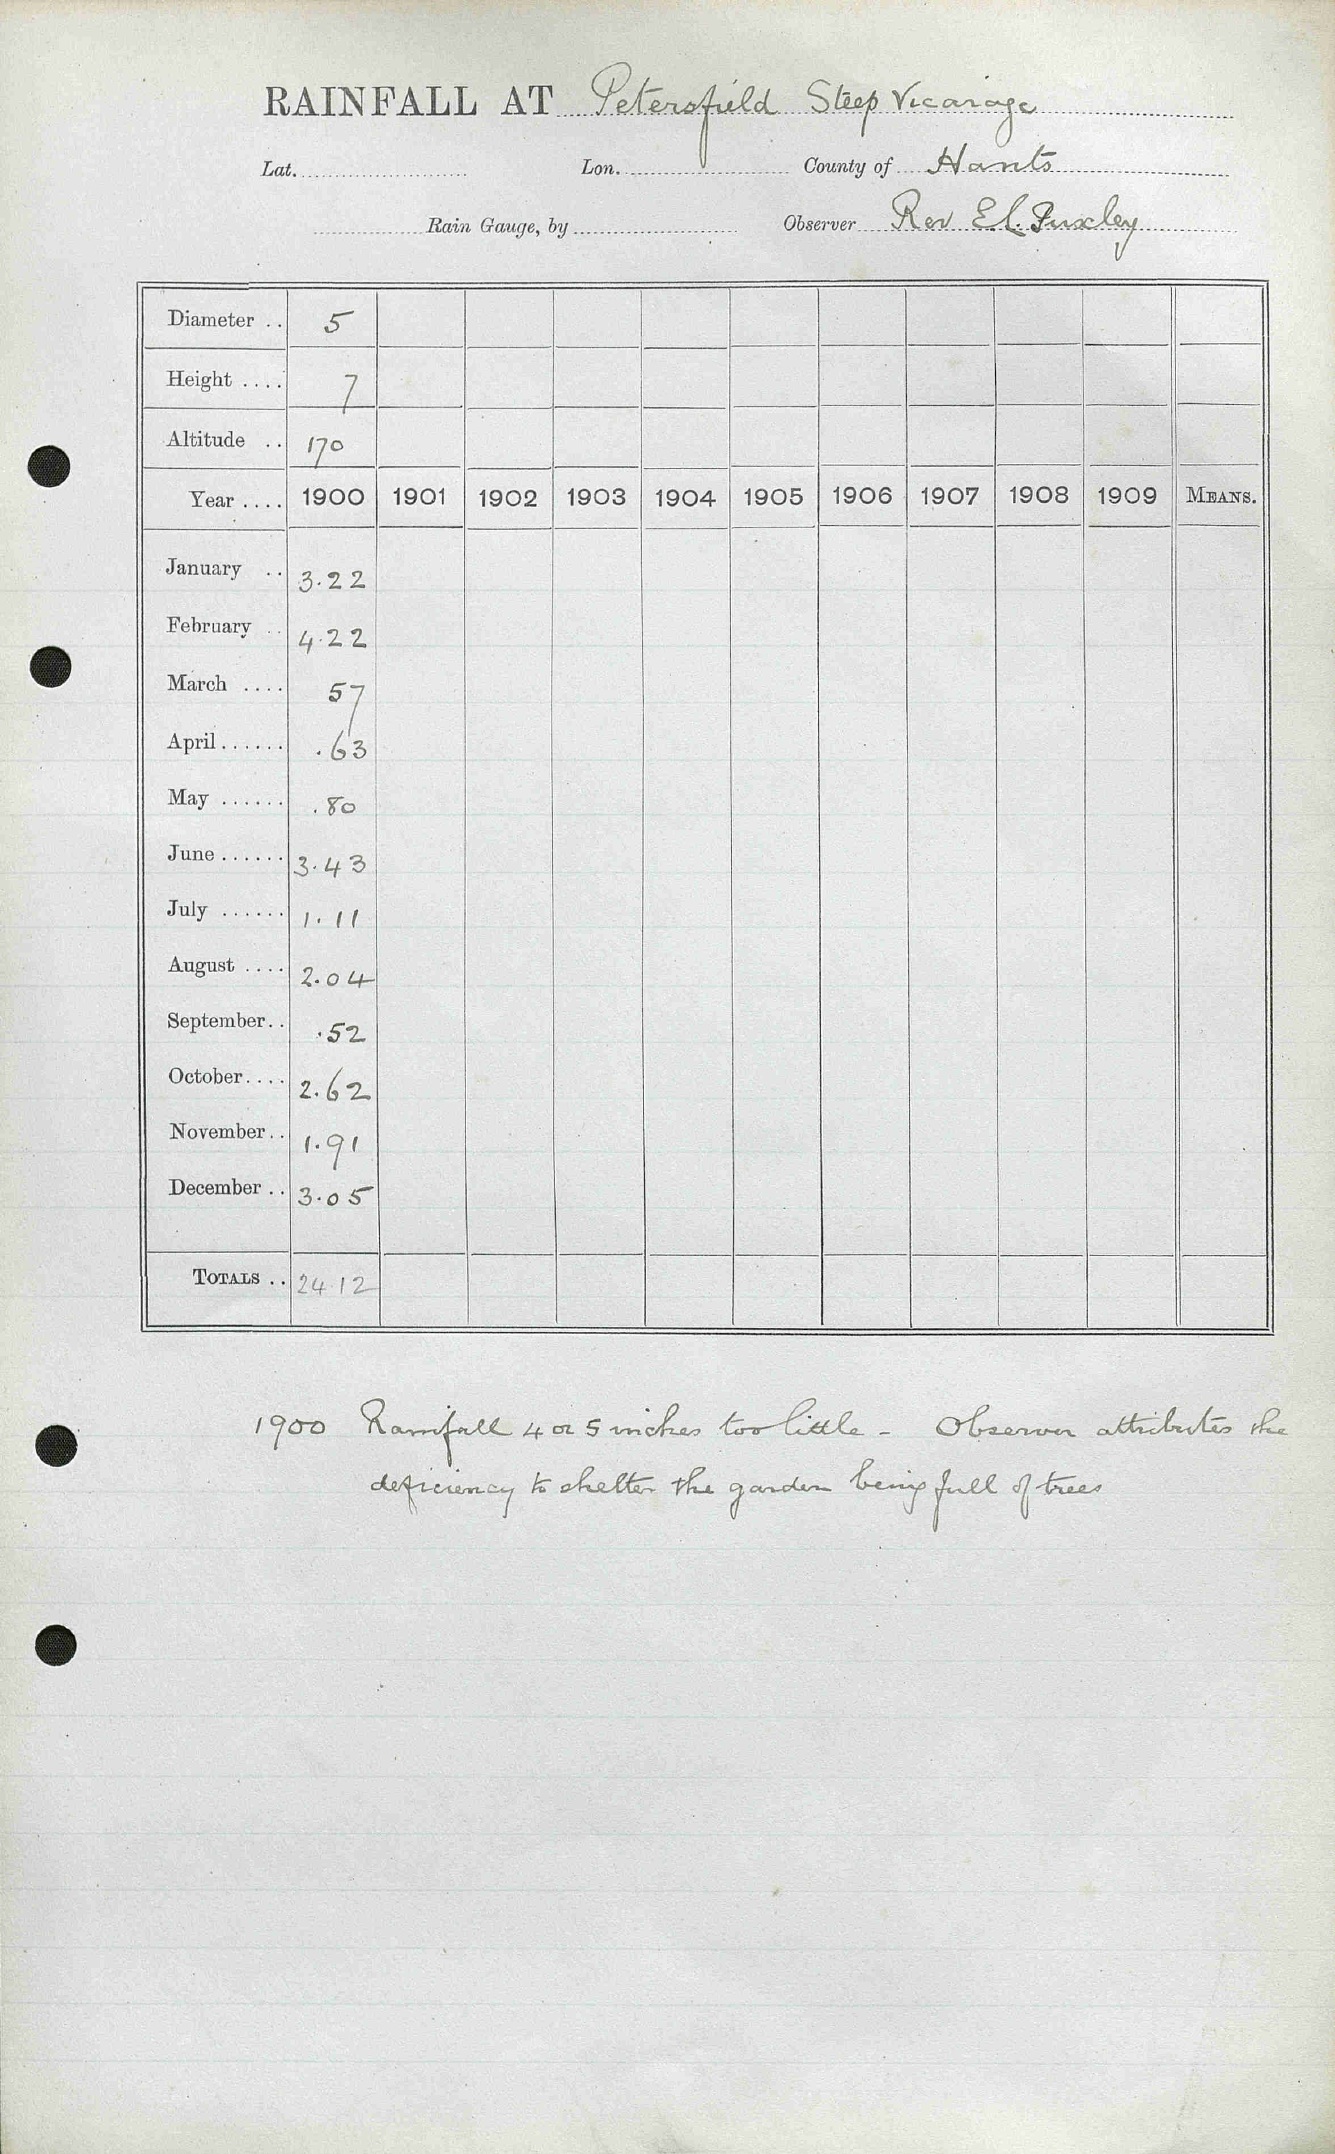 RAINFALL AT Petersfield Steep Vicarage
Lat. Lon. County of Hants
Rain Gauge, by Observer Rev E L. Puxley
Diameter .. 5
Height .... 7
Altitude .. 170
Year .... 1900 1901 1902 1903 1904 1905 1906 1907 1908 1909 MEANS.
January .. 3.22
February .. 4.22
March .... 57
April ...... .63
May ...... .80
June ...... 3.43
July ...... 1.11
August .... 2.04
September .. .52
October .... 2.62
November .. 1.91
December .. 3.05
TOTALS .. 24.12
1900 Rainfall 4 or 5 inches too little - Observer attributes the
deficiency to shelter the garden being full of trees